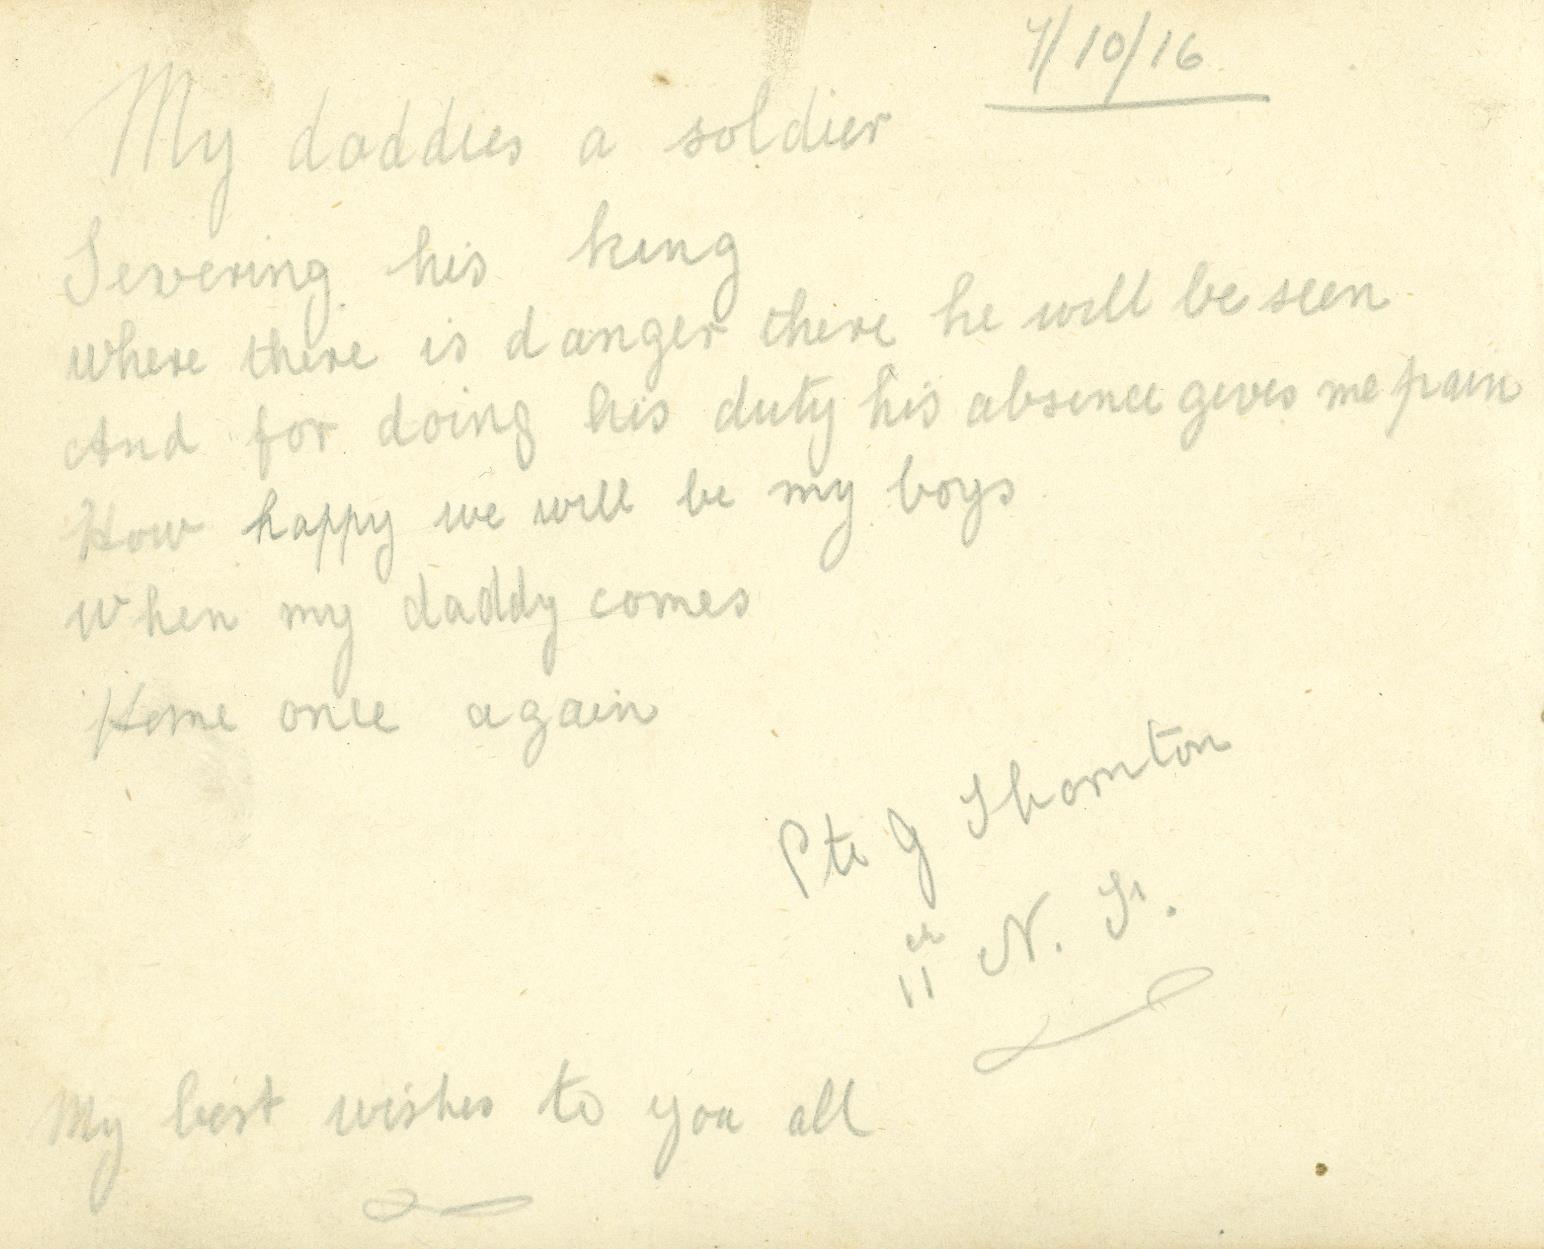 7/10/16
My daddies a soldier
Severing his king
where there is danger there he will be seen
And for doing his duty his absence gives me pain
How happy we will be my boys
When my daddy comes
Home once again
Pte G Thornton
11th N. F.
My best wishes to you all